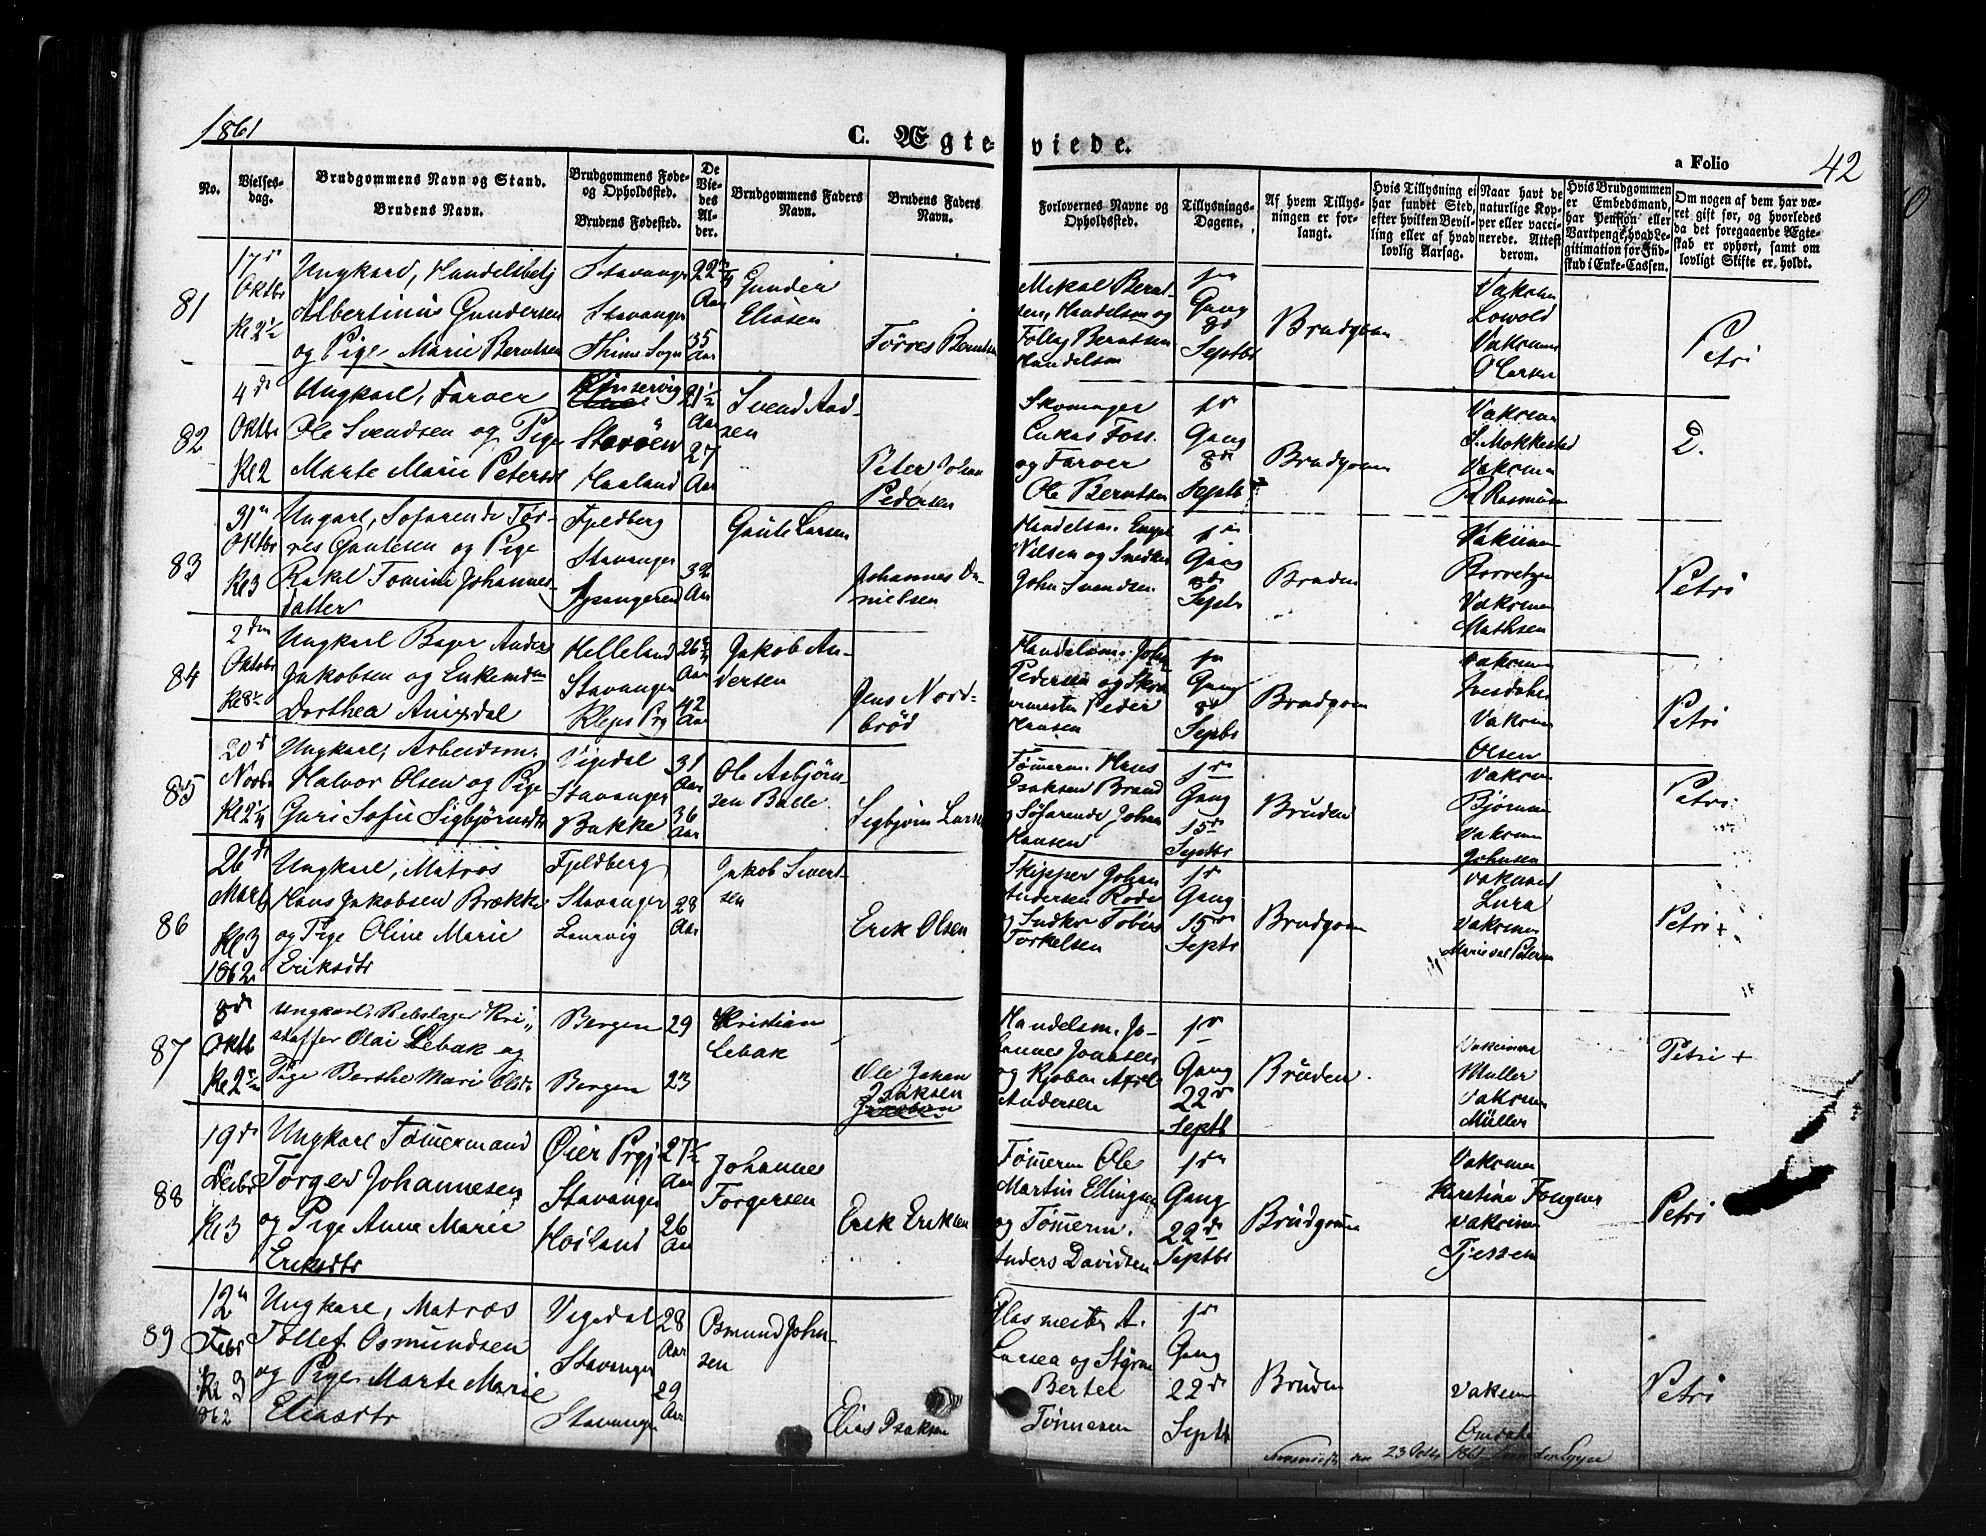 1861
C. Ægteviede.
a Folio 42
No.
Vielsesdag.
Brudgommens Navn og Stand.
Brudens Navn.
Brudgommens Føde- og Opholdssted.
Brudens Fødested.
De Viedes Alder.
Brudgommens Faders Navn.
Brudens Faders Navn.
Forlovernes Navne og Opholdssted.
Tillysnings-Dagene.
Af hvem Tillysningen er forlangt.
Hvis Tillysning ei har fundet Sted, efter hvilken Bevilling eller af hvad lovlig Aarsag.
Naar havt de naturlige Kopper eller vaccinerede. Attest derom.
Hvis Brudgommen er Embedsmand, har Pension eller Vartpenge, hvad Legitimation for Indskud i Enke-Cassen.
Om nogen af dem har været gift før, og hvorledes da det foregaaende Ægteskab er ophørt, samt om lovligt Skifte er holdt.
81
17de Oktbr Kl 2½
Ungkarl, Handelsbetj
Albertinus Gundersen
og Pige Marie Berntsen
Stavanger
Stavanger
Thime Sogn
22 Aar
35 Aar
Gunder
Eliasen
Tørres Berntsen
Mikal Bernt-
sen, Handelsm og
Tollag Berntsen
Handelsm
Gang
8de
Septbr
Brudgom
Vaksin
Lowold
Vaksin
Petri
82
4de Oktbr Kl 2
Ungkarl, Farver
Ole Svendsen og Pige
Marte Marie Petersdt
Kinservig
Stavöen
Haaland
21½ Aar
27 Aar
Svend Aad-
sen
Peter Johan
Pedersen
Skomager
Lukas Foss.
og Farver
Ole Berntsen
Gang
8de
Septb
Brudgom
Vaksin
S. Mokkestad
Vaksin
Rasmusen
D.
83
31te Oktbr Kl 3
Ungkarl, Søfarende Tør-
res Gautesen og Pige
Rakel Tomine Johannes-
datter
Fjeldberg
Stavanger
32 Aar
Gaute Larsen
Johannes Da-
nielsen
Handelsm.
Nilsen og Snedker
John Svendsen
Gang
8de
Septb
Bruden
Vaksin
Vaksin
Mathsen
Petri
84
2den Oktobr Kl 8½
Ungkarl Bager Anders
Jakobsen og Enkemdm
Dorthea Anixdal
Helleland
Stavanger
Kleps Prg
26 Aar
42 Aar
Jakob An-
dersen
Jens Nord-
brød
Handelsm. John
Pedersen og
Peder
Hansen
Gang
8de
Septbr
Brudgom
Vaksin
Ivesdahl
Vaksin
Olsen
Petri
85
20de Novbr Kl 2¼
Ungkarl, Arbeidsm.
Halvor Olsen og Pige
Guri Sofie Sigbjørnsdtr
Vigedal
Stavanger
Bakke
31 Aar
36 Aar
Ole Asbjørn-
sen Balle
Sigbjørn Larsen
Tømerm. Hans
Isaksen Brand
og Søfarende Johan
Hansen
Gang
15de
Septbr
Bruden
Vaksin
Vaksin
Johnsen
Petri
86
26de Marts Kl 3
1862
Ungkarl, Matros
Hans Jakobsen Brække
og Pige Oline Marie
Eriksdtr
Fjeldberg
Stavanger
Laurvig
28 Aar
Jakob Sivert-
sen
Erik Olsen
Skipper Johan
Andersen Rode
og Snedker Tobias
Torkelsen
Gang
15de
Septbr
Brudgom
Lura
Vaksin
Petri +
87
8de Oktb Kl 2½
Ungkarl, Rebslager Kri-
stoffer Olai Lebak og
Pige Berthe Mari Olsdtr
Bergen
Bergen
29
23
Kristian
Lebak
Ole Johan
Isaksen
Handelsm. Jo-
hannes Jonassen
og Kjøbm Axel
Andersen
Gang
22de
Septb
Brüden.
Müller
Vaksin
Müller
Petri +
88
19de Desbr Kl 3
Ungkarl Tømermand
Torger Johannesen
og Pige Anne Marie
Eriksdtr
Øier Prgj
Stavanger
Høiland
27½ Aar
26 Aar
Johannes
Torgersen
Erik Eriksen
Tømerm Ole
Martin Ellingsen
og Tømerm.
Anders Davidsen
Gang
22de
Septbr
Brüdgom
Vaksin
Karetina Fougner
Vaksin
Tjessem
Petri
89
12te Febr Kl 3
1862
Ungkarl, Matros
Tollef Osmundsen
og Pige Marte Marie
Eliasdtr
Vigedal
Stavanger
Stavanger
28 Aar
29 Aar
Osmund John-
sen
Elias Isaksen
Glasmester A.
Larsen og Styrm
Bertel
Tønnesen
Gang
22de
Septb
Brüden
Vaksin
Petri